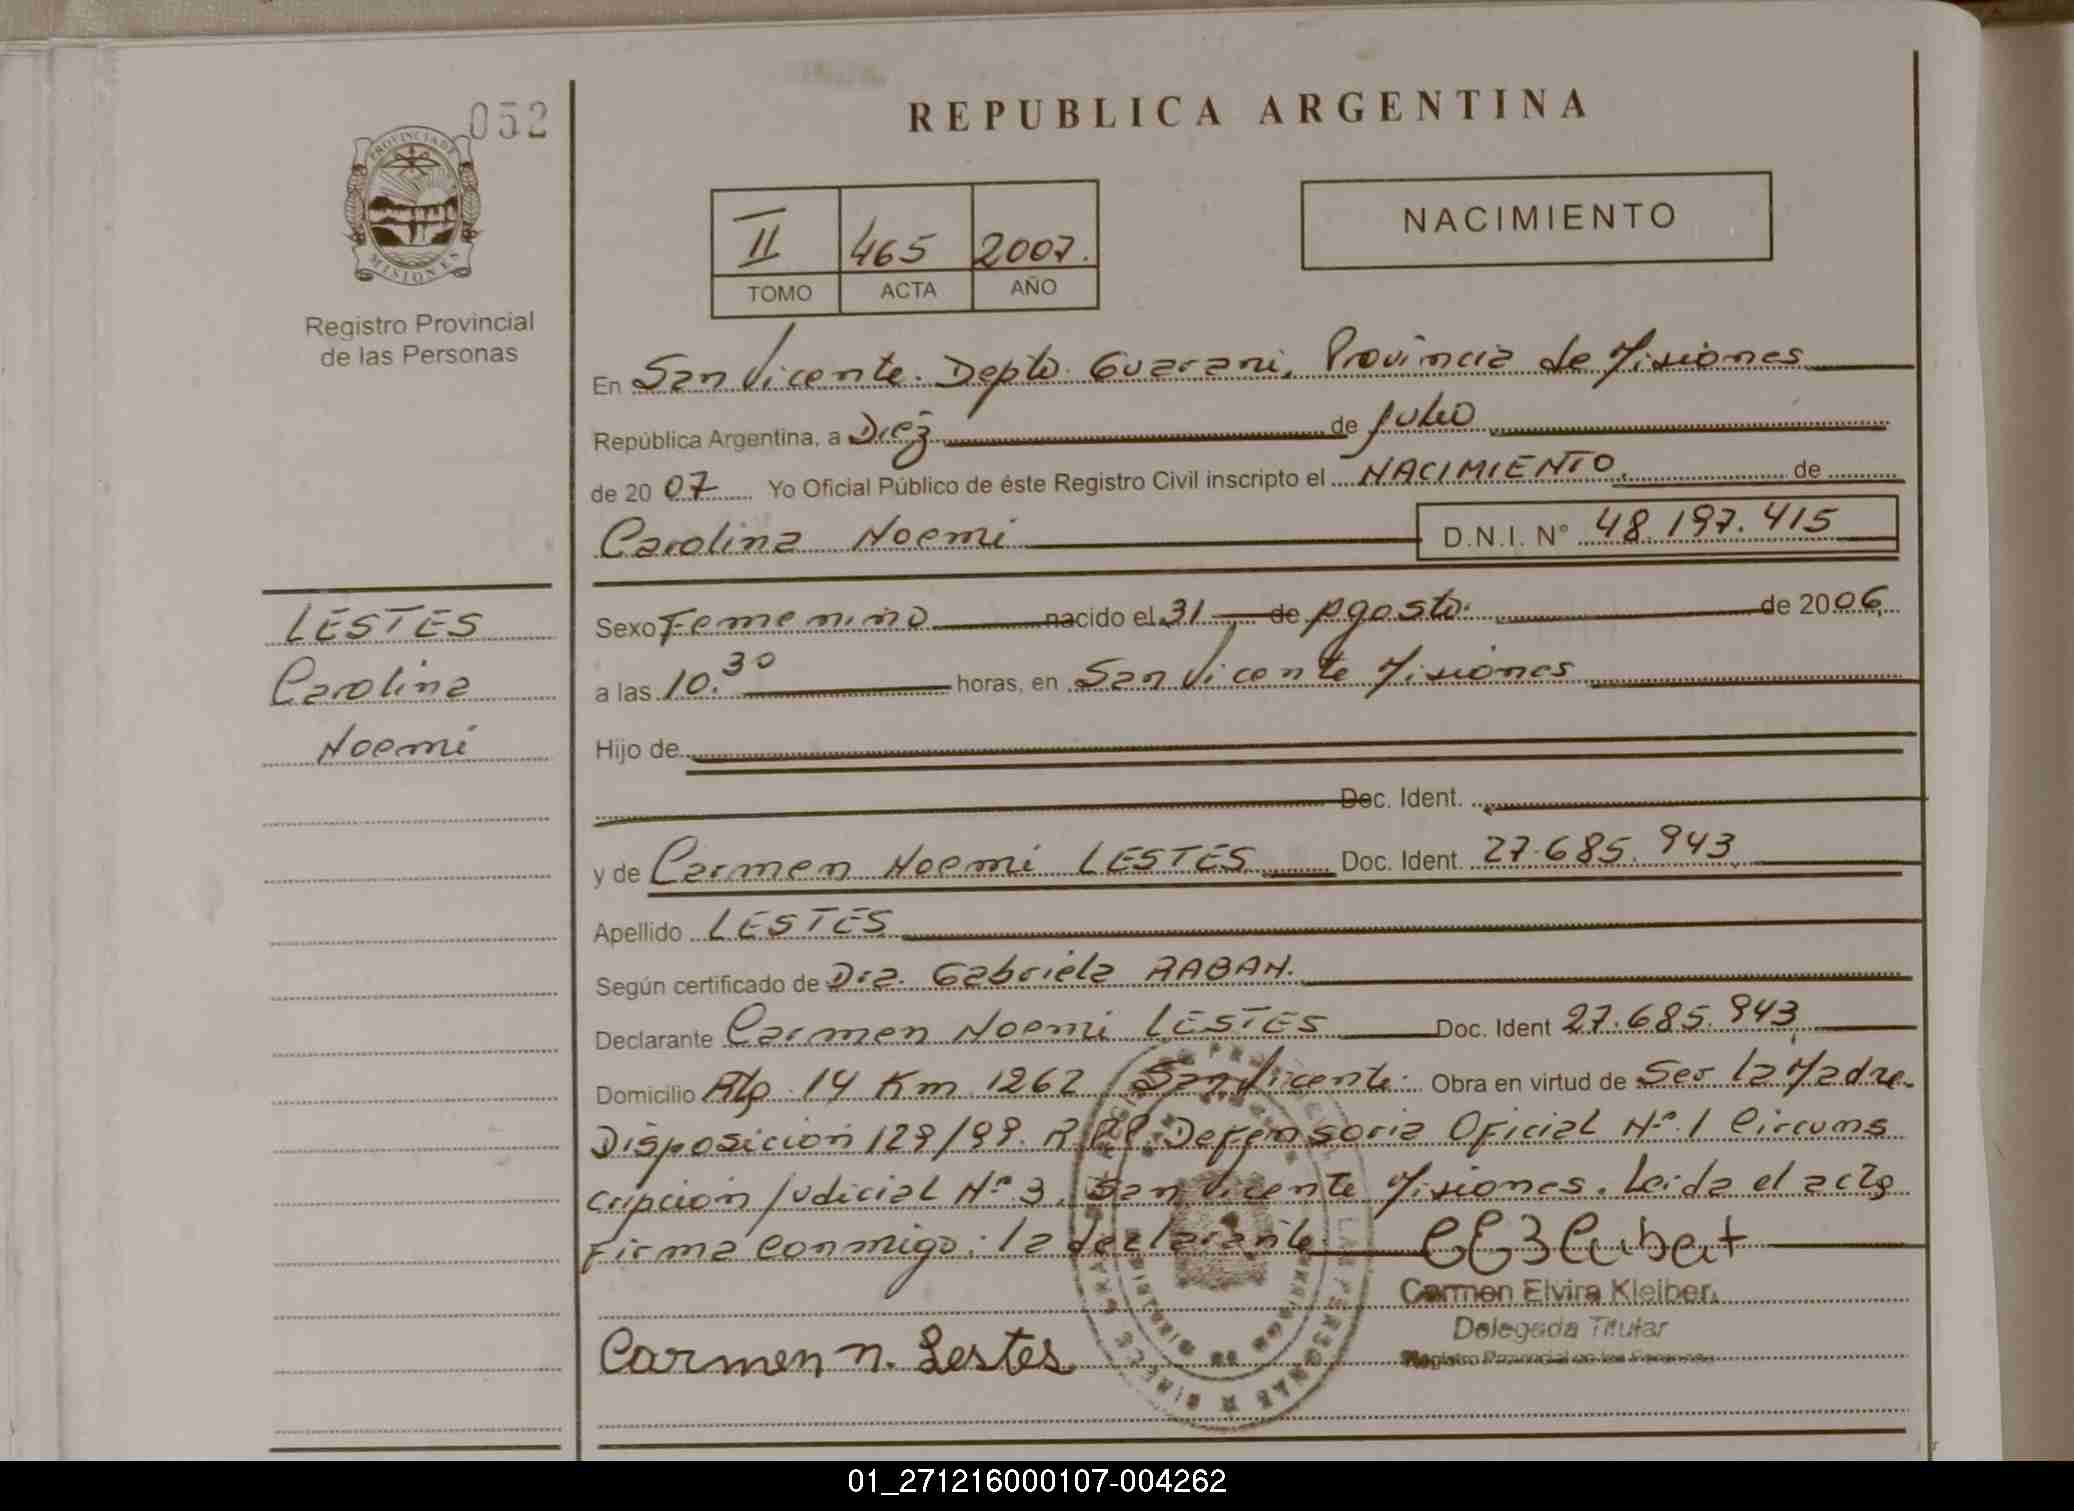 052
PROVINCIA DE
MISIONES
Registro Provincial
de las Personas
REPUBLICA ARGENTINA
II 465 2007.
TOMO ACTA AÑO
NACIMIENTO
En San Vicente. Depto. Guarani, Provincia de Misiones
República Argentina, a Diez de Julio
de 2007 Yo Oficial Público de éste Registro Civil inscripto el NACIMIENTO. de
Carolina Noemi D.N.I. N° 48.197.415
LESTES
Carolina
Noemi
Sexo Femenino nacido el 31 de Agosto. de 2006,
a las 10.30 horas, en San Vicente Misiones
Hijo de
Doc. Ident.
y de Carmen Noemi LESTES Doc. Ident. 27.685.943
Apellido LESTES
Según certificado de Dra. Gabriela RABAH.
Declarante Carmen Noemi LESTES Doc. Ident 27.685.943,
Domicilio 14 Km 1262 San Vicente. Obra en virtud de Ser la Madre.
Disposición 129/99. Defensoria Oficial N° 1 Circuns
cripción Judicial N° 3. San Vicente Misiones. Leida el acta
Firma conmigo: la declarante.
Carmen Elvira Kleiber
Delegada Titular
Registro Provincial de las Personas
Carmen n. Lestes
01_271216000107-004262